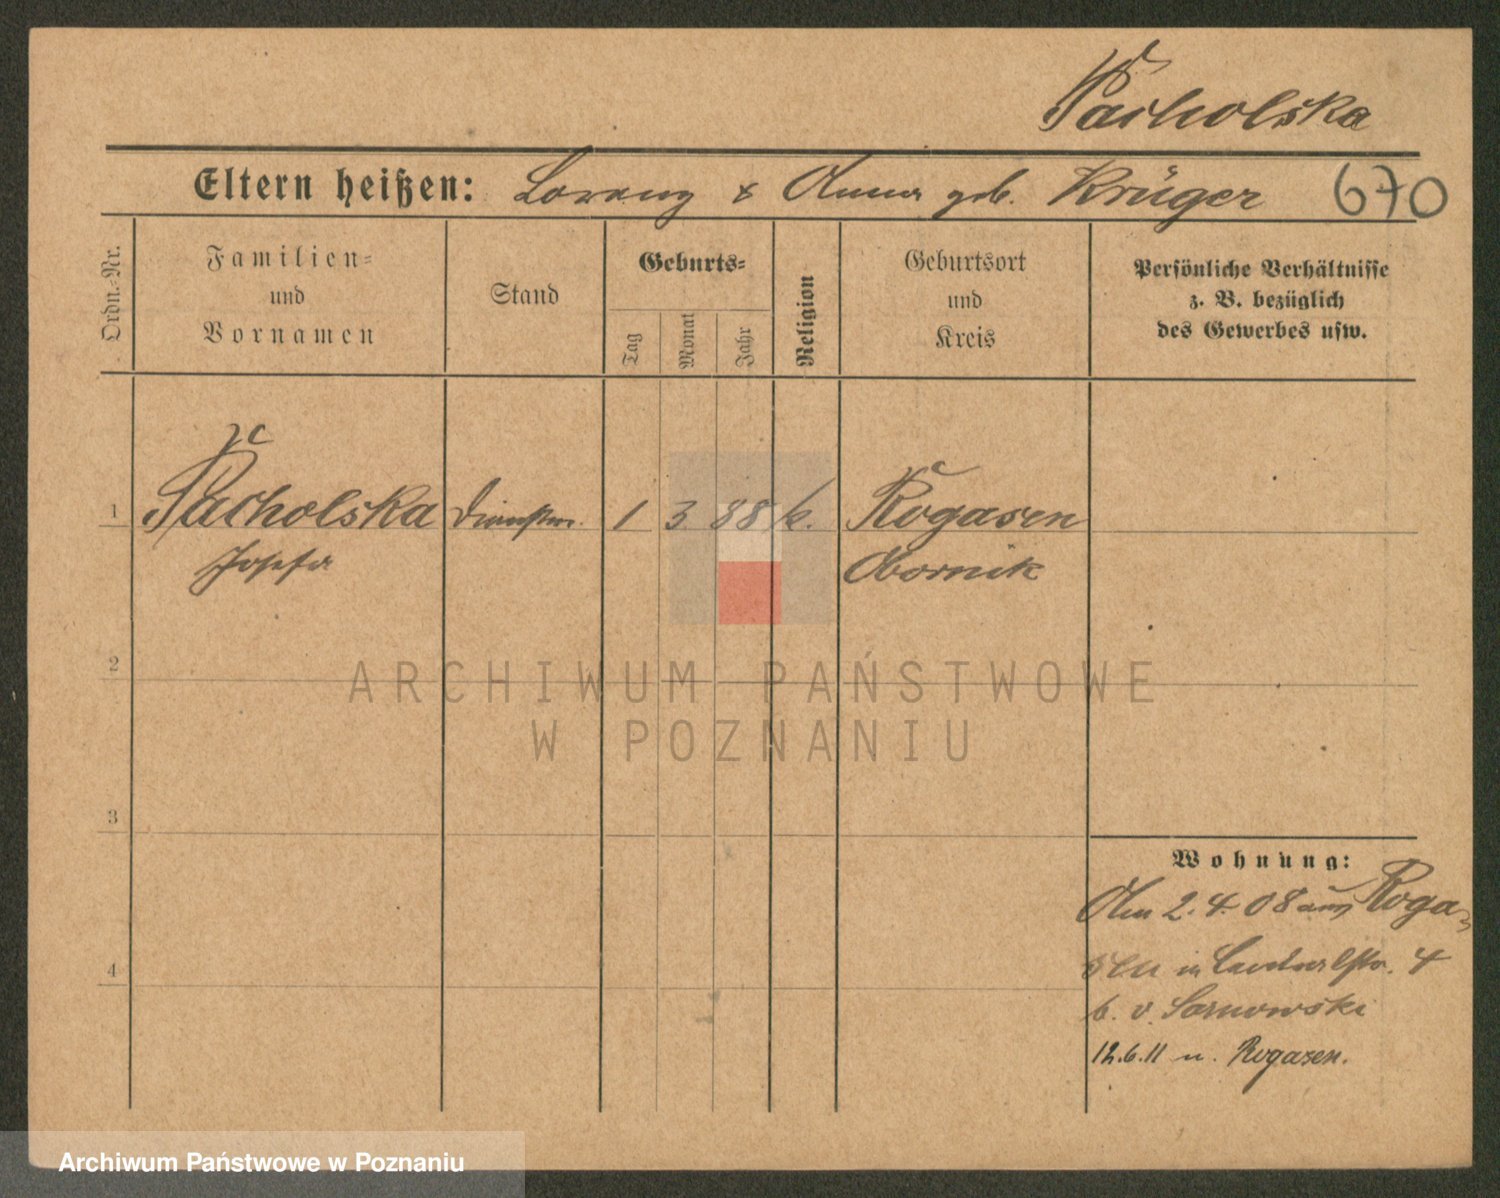 Pacholska
Eltern heißen: Lorenz & Anna geb. Krüger 670
Ordn.-Nr.
Familien-
und
Vornamen
Stand
Geburts-
Tag
Monat
Jahr
Religion
Geburtsort
und
Kreis
Persönliche Verhältnisse
z. B. bezüglich
des Gewerbes usw.
1 Pacholska Dienstm. 1 3 88 k. Rogasen
Josefa Obornik
2
3
4
Wohnung:
Am 2.4.08 aus Roga-
sen in 4
b. v. Sarnowski
12.6.11 n. Rogasen.
ARCHIWUM PAŃSTWOWE
W POZNANIU
Archiwum Państwowe w Poznaniu